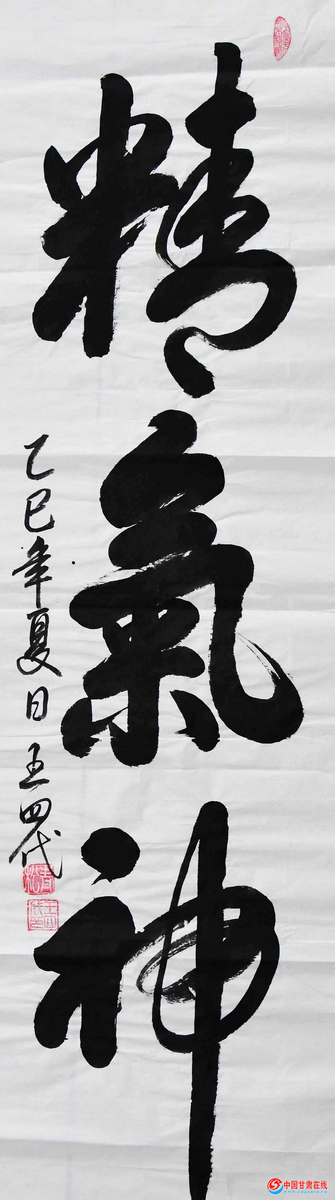 精氣神
乙巳年夏日王四代
中国甘肃在线